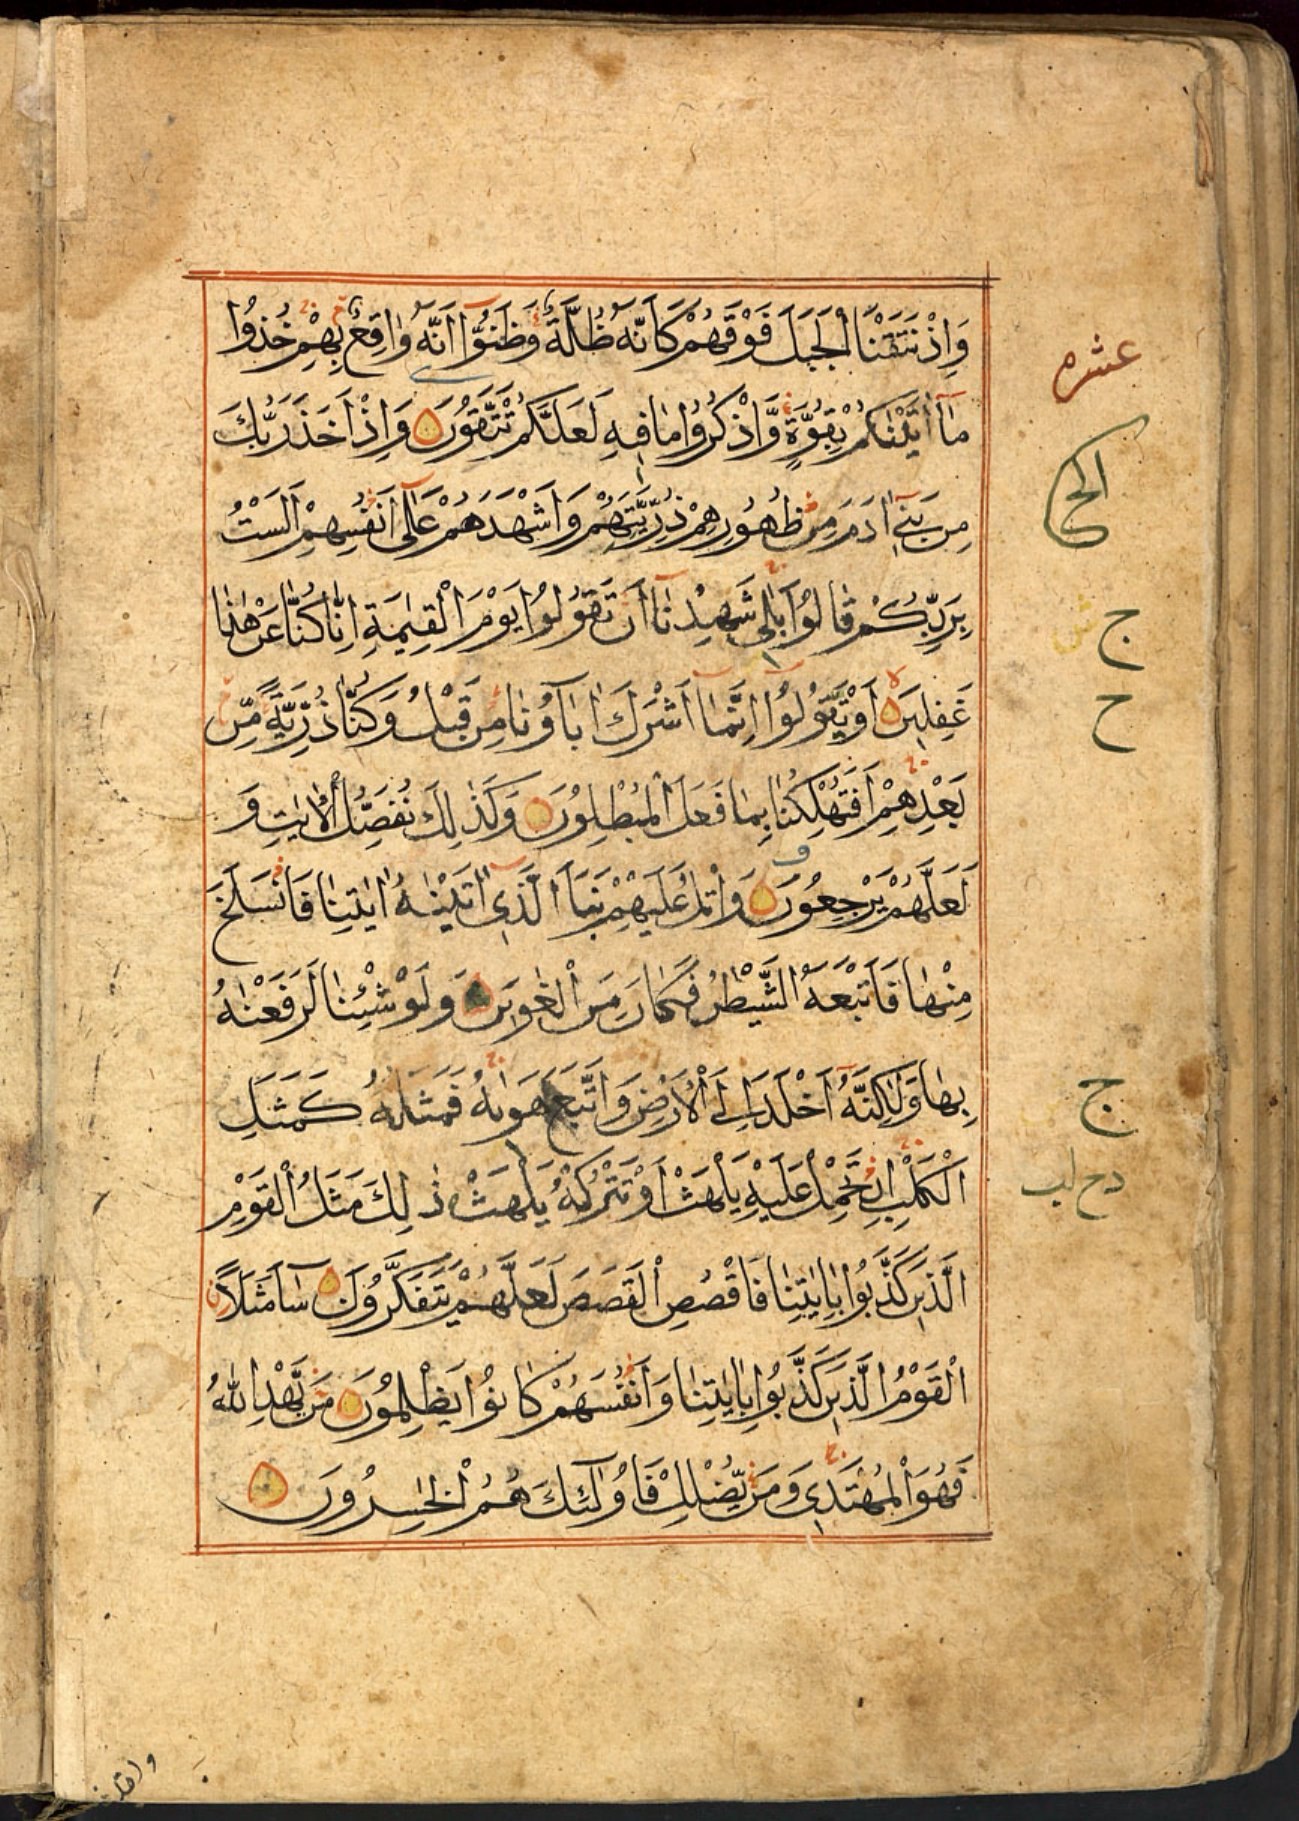 وَاِذْ نَتَقْنَا الْجَبَلَ فَوْقَهُمْ كَاَنَّهُ ظُلَّةٌ وَظَنُّوٓا اَنَّهُ وَاقِعٌ بِهِمْ خُذُوا
مَآ اٰتَيْنٰكُمْ بِقُوَّةٍ وَّاذْكُرُوا مَا فِيهِ لَعَلَّكُمْ تَتَّقُونَ وَاِذْ اَخَذَ رَبُّكَ
مِنْ بَنِيٓ اٰدَمَ مِنْ ظُهُورِهِمْ ذُرِّيَّتَهُمْ وَاَشْهَدَهُمْ عَلٰٓى اَنْفُسِهِمْ اَلَسْتُ
بِرَبِّكُمْ قَالُوا بَلٰى شَهِدْنَآ اَنْ تَقُولُوا يَوْمَ الْقِيٰمَةِ اِنَّا كُنَّا عَنْ هٰذَا
غٰفِلِينَ اَوْ تَقُولُوٓا اِنَّمَآ اَشْرَكَ اٰبَآؤُنَا مِنْ قَبْلُ وَكُنَّا ذُرِّيَّةً مِّنْ
بَعْدِهِمْ اَفَتُهْلِكُنَا بِمَا فَعَلَ الْمُبْطِلُونَ وَكَذٰلِكَ نُفَصِّلُ الْاٰيٰتِ وَ
لَعَلَّهُمْ يَرْجِعُونَ وَاتْلُ عَلَيْهِمْ نَبَاَ الَّذِيٓ اٰتَيْنٰهُ اٰيٰتِنَا فَانْسَلَخَ
مِنْهَا فَاَتْبَعَهُ الشَّيْطٰنُ فَكَانَ مِنَ الْغٰوِينَ وَلَوْ شِئْنَا لَرَفَعْنٰهُ
بِهَا وَلٰكِنَّهٗٓ اَخْلَدَ اِلَى الْاَرْضِ وَاتَّبَعَ هَوٰىهُ فَمَثَلُهُ كَمَثَلِ
الْكَلْبِ اِنْ تَحْمِلْ عَلَيْهِ يَلْهَثْ اَوْ تَتْرُكْهُ يَلْهَثْ ذٰلِكَ مَثَلُ الْقَوْمِ
الَّذِينَ كَذَّبُوا بِاٰيٰتِنَا فَاقْصُصِ الْقَصَصَ لَعَلَّهُمْ يَتَفَكَّرُونَ سَآءَ مَثَلًا
الْقَوْمُ الَّذِينَ كَذَّبُوا بِاٰيٰتِنَا وَاَنْفُسَهُمْ كَانُوا يَظْلِمُونَ مَنْ يَّهْدِ اللّٰهُ
فَهُوَ الْمُهْتَدِي وَمَنْ يُّضْلِلْ فَاُولٰٓئِكَ هُمُ الْخٰسِرُونَ
عشره
ج
ح
ج